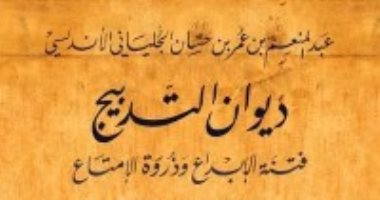 عبد المنعم بن عمر بن حسان الجلياني الأندلسي
ديوان التدبيج
فتنة الإبداع وذروة الإمتاع